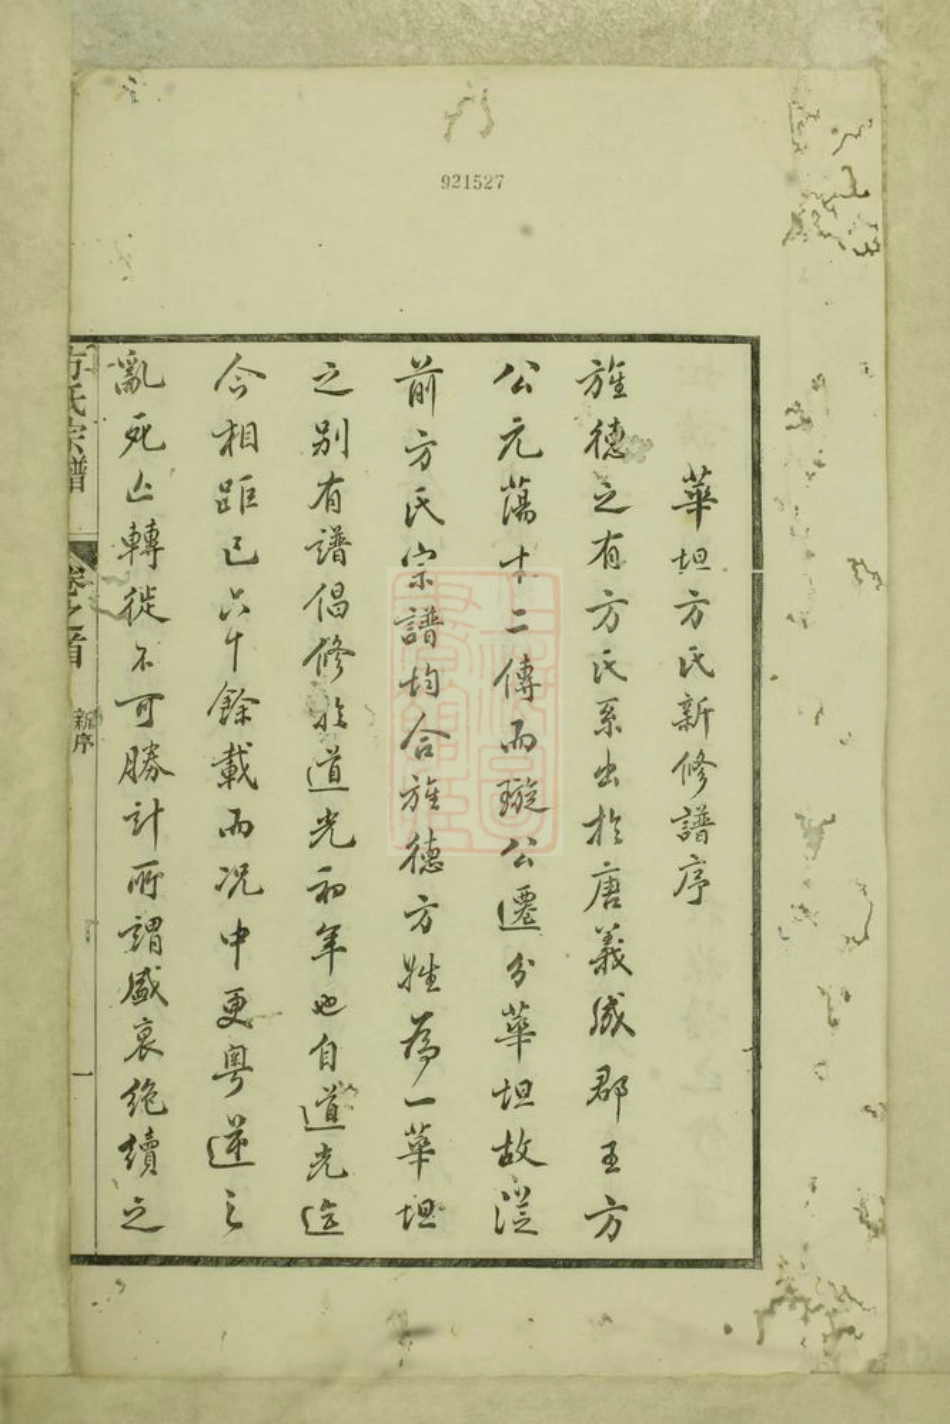 921527
華坦方氏新修譜序
旌德之有方氏系出於唐義成郡王方
公元蕩十二傳而璇公遷分華坦故從
前方氏宗譜均合旌德方姓為一華坦
之別有譜倡修於道光初年也自道光迄
今相距已六十餘載而况中更粵逆之
亂死亡轉徙不可勝計所謂盛衰絶續之
方氏宗譜
卷之首
新序
一